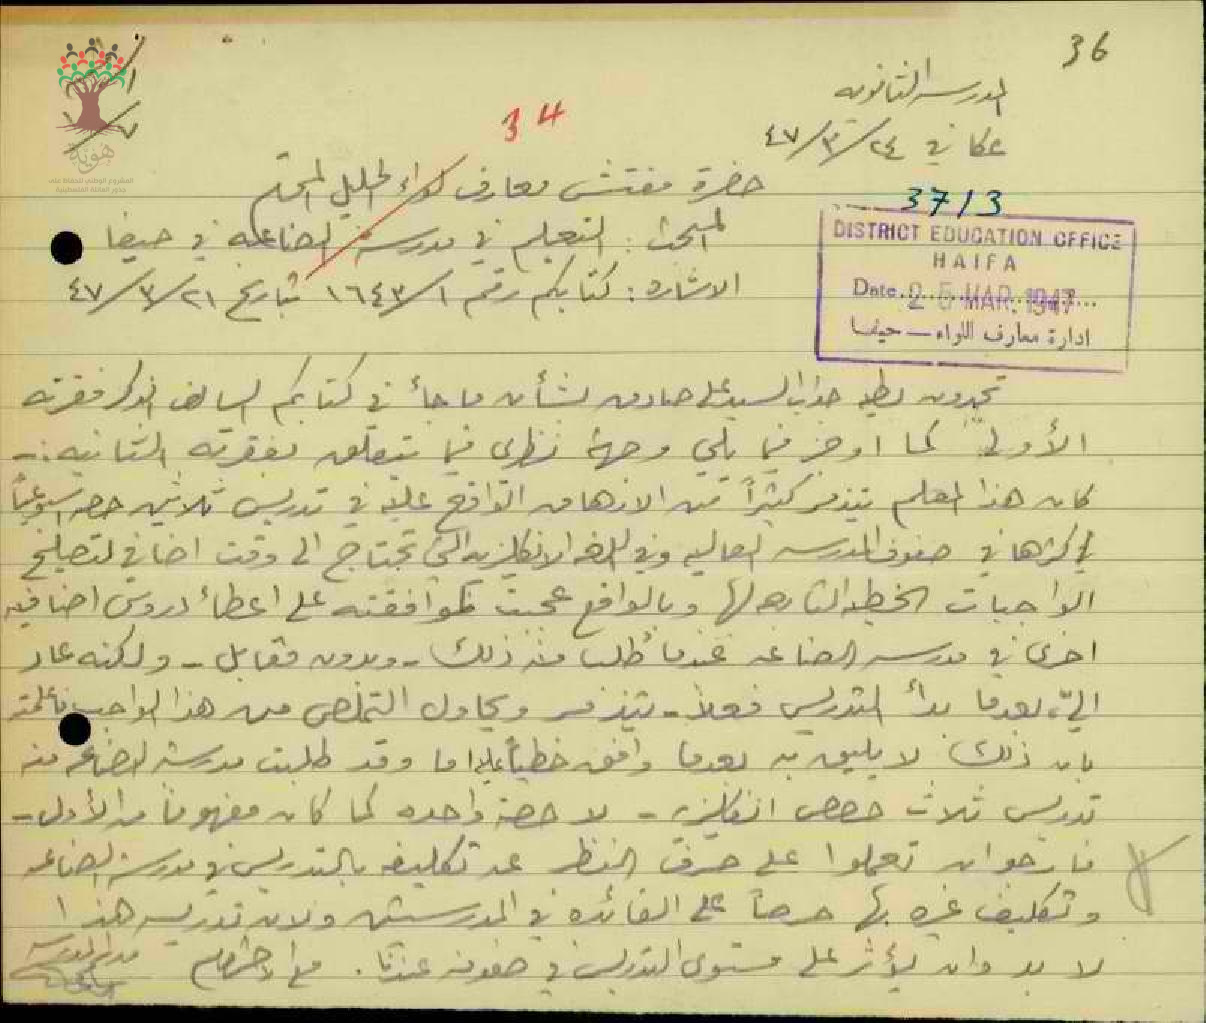 36
المدرسة الثانوية
34
عكا في ٢٤/٣/٤٧
حضرة مفتش معارف لواء الجليل المحترم
37/3
المبحث: التعليم في مدرسة الصناعة في حيفا
الاشارة: كتابكم رقم ١٦٤٣/١ تاريخ ٢١/٣/٤٧
DISTRICT EDUCATION OFFICE
HAIFA
Date 25 MAR. 1947
ادارة معارف اللواء — حيفا
تجدون بطيه جواب السيد علي صادق بشأن ما جاء في كتابكم السالف الذكر فقرته
الأولى كما اوجز فيما يلي وجهة نظري فيما يتعلق بفقرته الثانية:-
كان هذا المعلم يتذمر كثيراً من الارهاق الواقع عليه في تدريس ثلاثين حصة اسبوعياً
اكثرها في صفوف المدرسة العالية وفي اللغة الانكليزية التي تحتاج الى وقت اضافي لتصليح
الواجبات الخطية التابعة لها وبالواقع عجبت لموافقته على اعطاء دروس اضافية
اخرى في مدرسة الصناعة عندما طلب منه ذلك - وبدون مقابل - ولكنه عاد
اليّ، بعدما بدأ التدريس فعلاً - يتذمر ويحاول التخلص من هذا الواجب فأعلمته
بان ذلك لا يليق به بعدما وافق خطياً عليه اما وقد طلبت مدرسة الصناعة منه
تدريس ثلاث حصص انكليزية - لا حصة واحدة كما كان مفهوماً من الأول -
فارجو ان تعملوا على صرف النظر عن تكليفه بالتدريس في مدرسة الصناعة
وتكليف غيره بها حرصاً على الفائدة في المدرستين ولان تدريسه هذا
لا بد وان يؤثر على مستوى التدريس في صفوفه عندنا. مع الاحترام
مدير المدرسة
هوية
المشروع الوطني للحفاظ على
جذور العائلة الفلسطينية